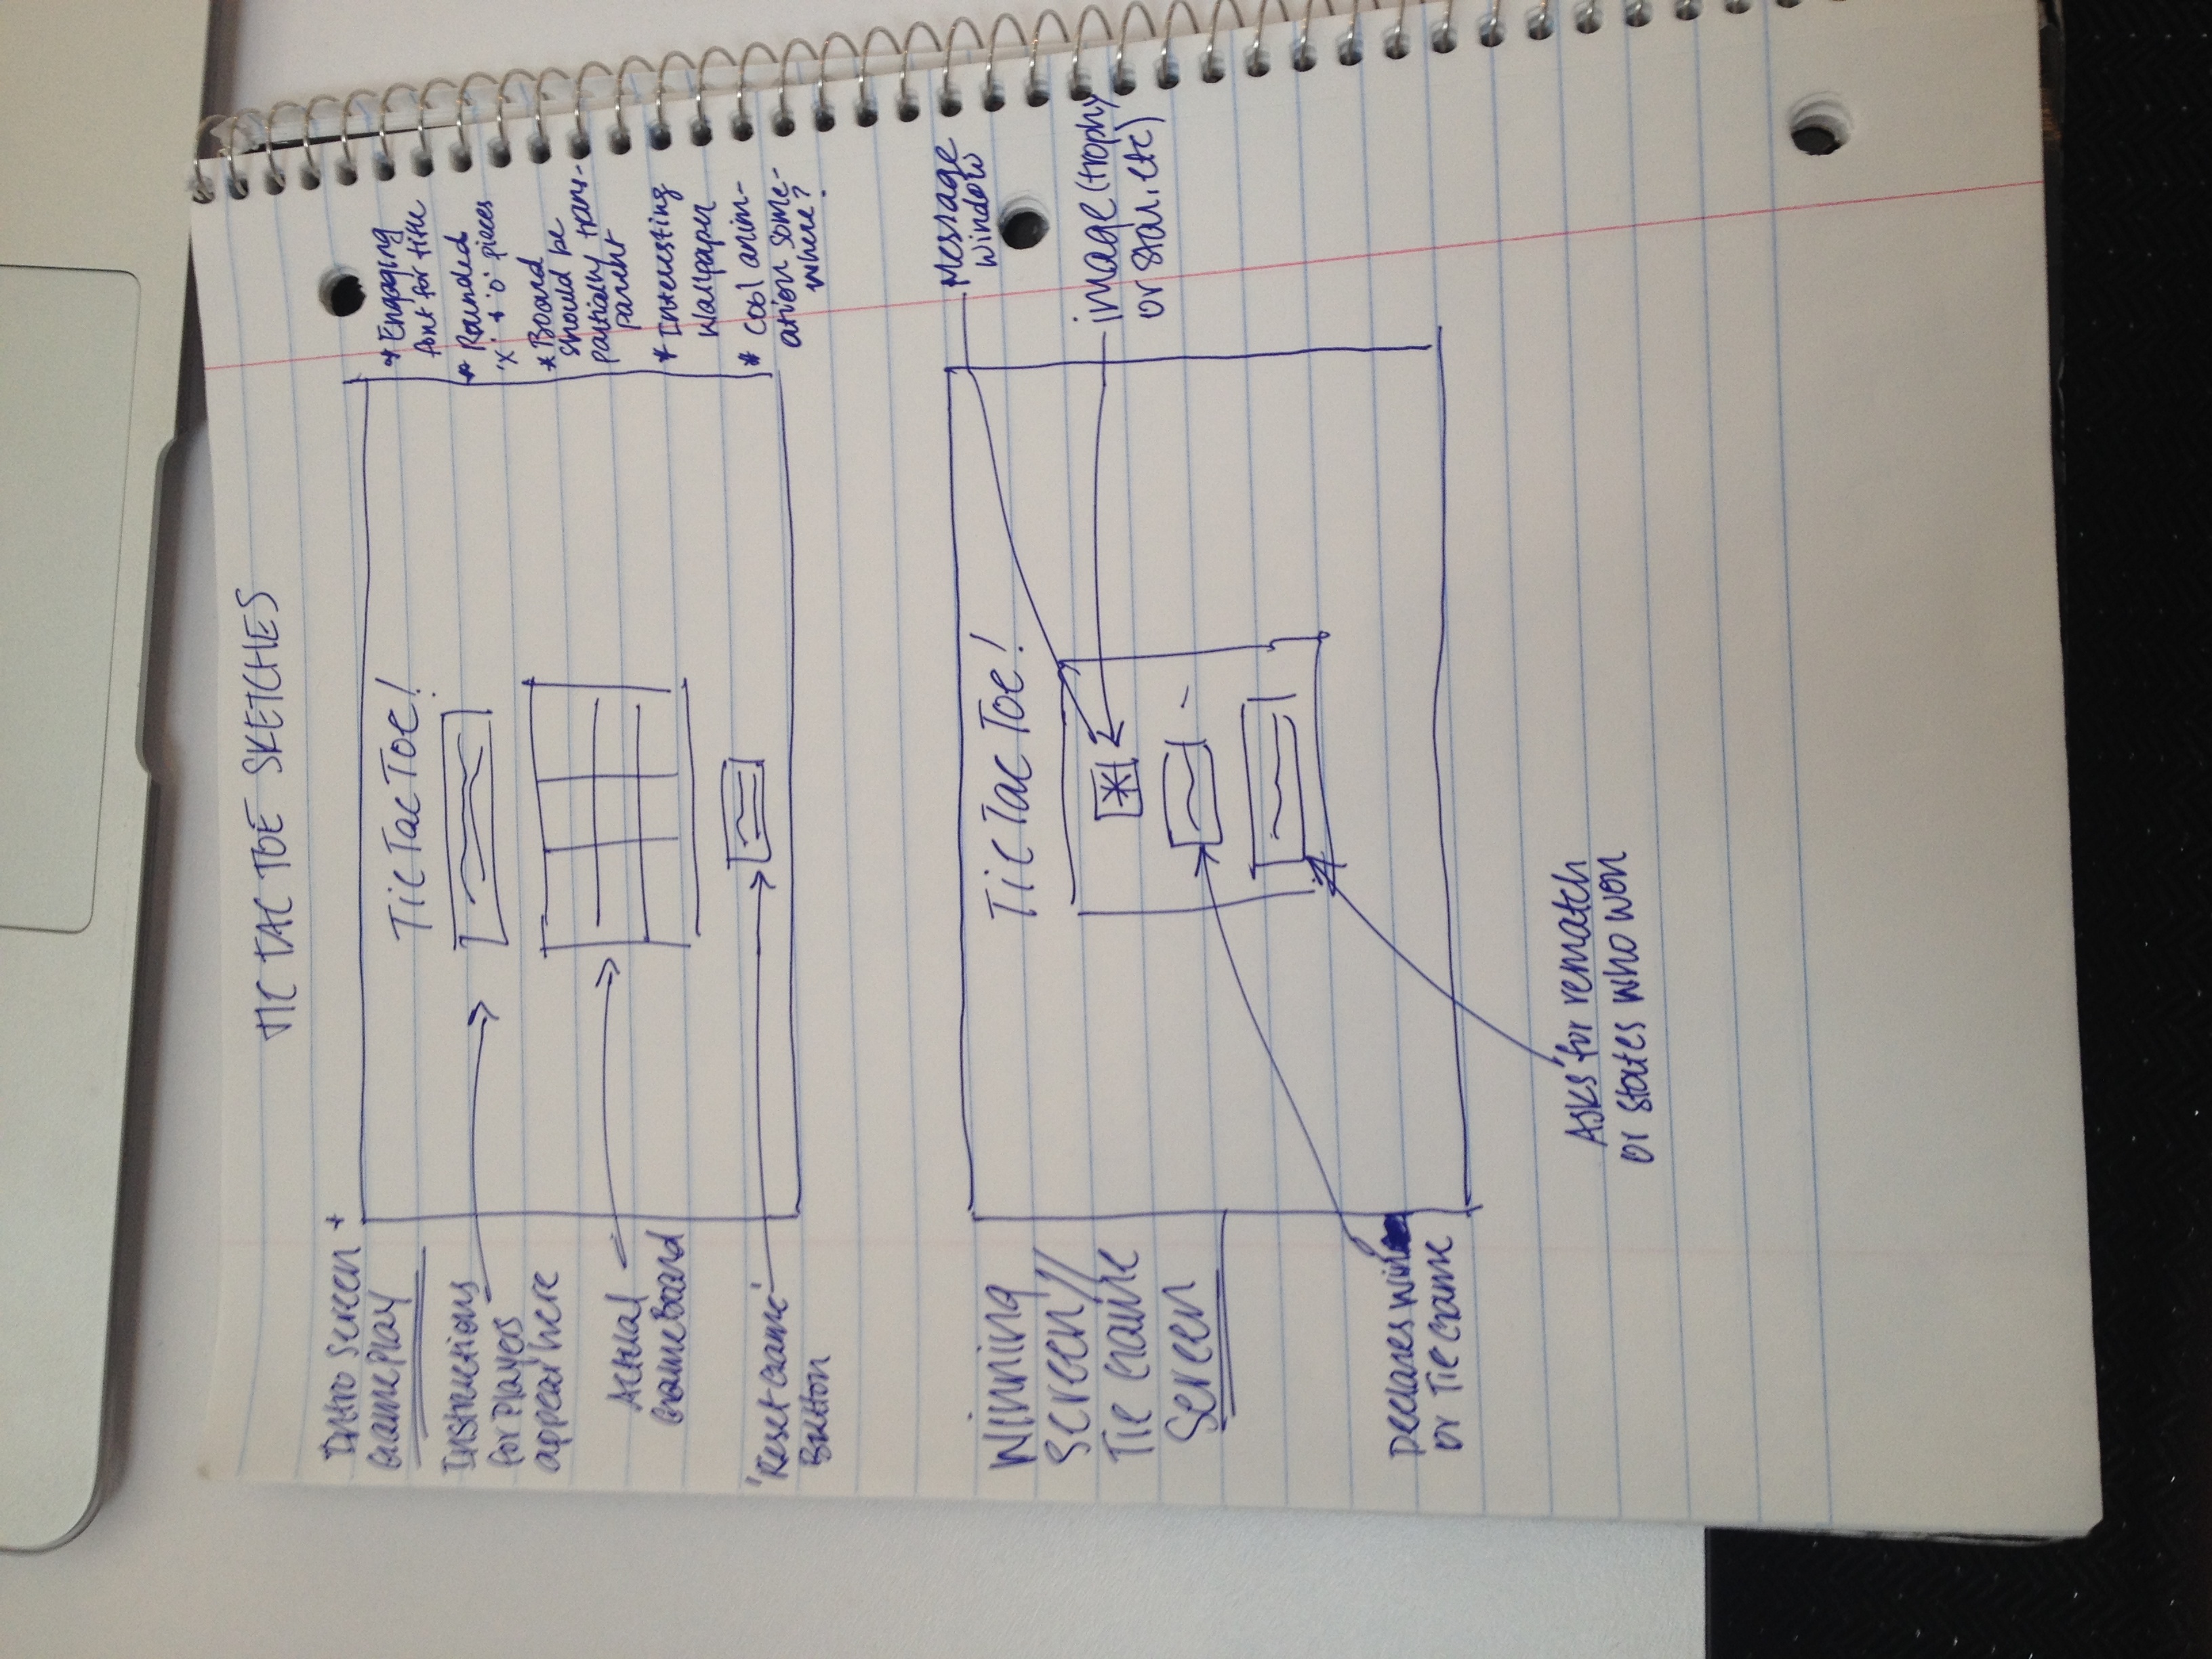 TIC TAC TOE SKETCHES
Intro Screen +
Game Play
Instructions
for Players
appear here
Actual
Game Board
'Reset Game'
Button
Tic Tac Toe!
* Engaging
font for title
* Rounded
'x' + 'o' pieces
* Board
should be
partially trans-
parent
* Interesting
Wallpaper
* Cool anim-
ation some-
where?
Winning
Screen //
Tie Game
Screen
Declares win
or Tie Game
Tic Tac Toe!
Message
Window
image (trophy
or star, etc)
Asks for rematch
or states who won